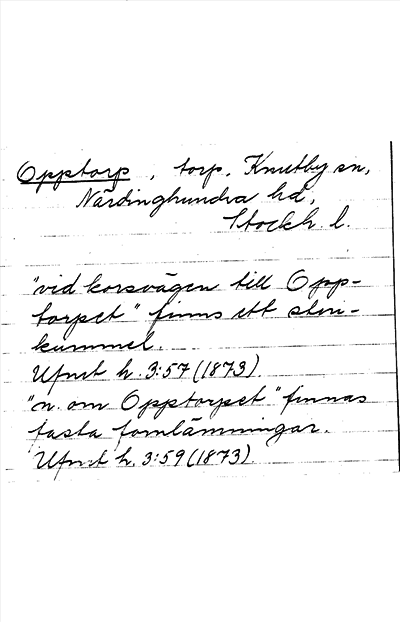 Opptorp, torp, Knutby sn,
Närdinghundra hd,
Stockh. l.
"vid korsvägen till Opp-
torpet" finns ett sten-
kummel.
Ufmt h. 3:57 (1873).
"n. om Opptorpet" finnas
fasta fornlämningar.
Ufmt h. 3:59 (1873).